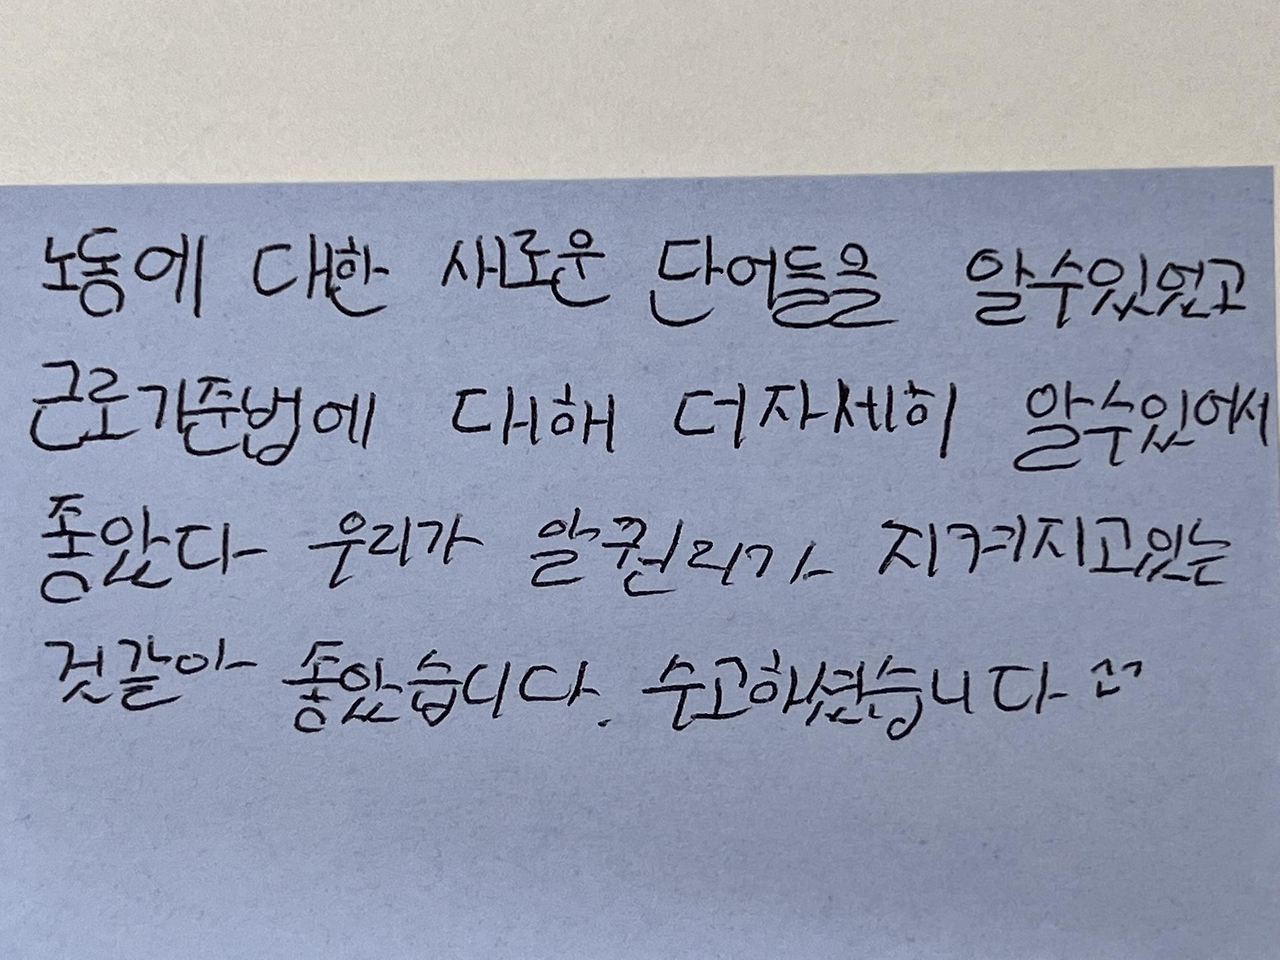 노동에 대한 새로운 단어들을 알수있었고
근로기준법에 대해 더자세히 알수있어서
좋았다 우리가 알권리가 지켜지고있는
것같아 좋았습니다. 수고하셨습니다 ^^